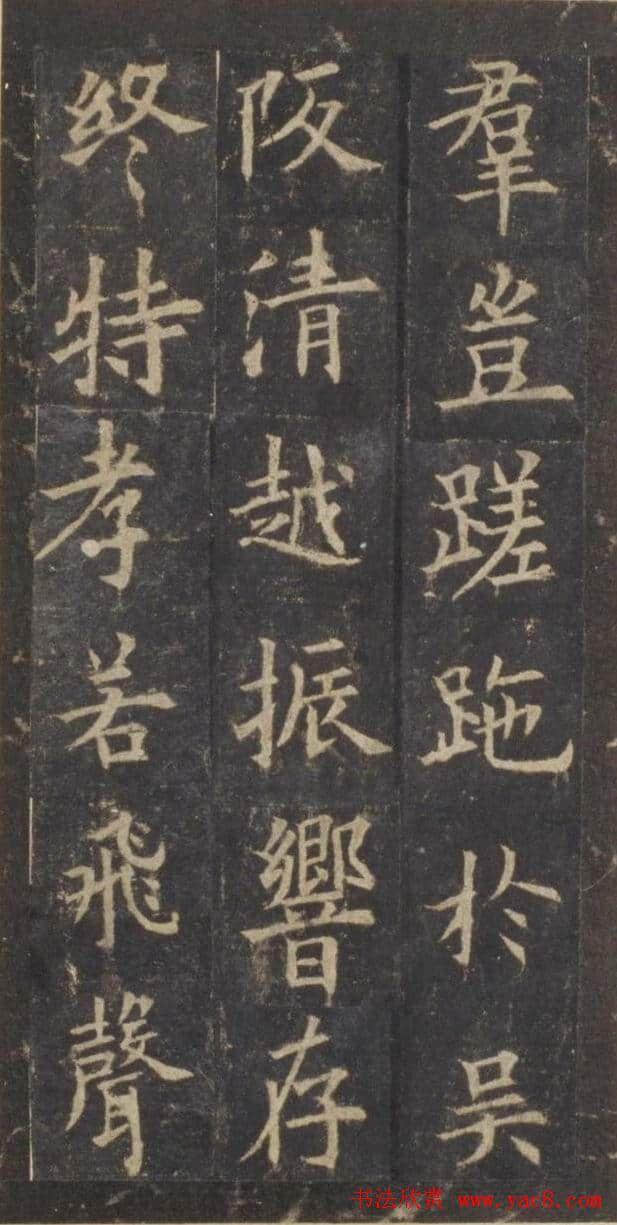 羣豈蹉跎於吴
阪清越振響存
終特孝若飛聲
书法欣赏 www.yac8.com